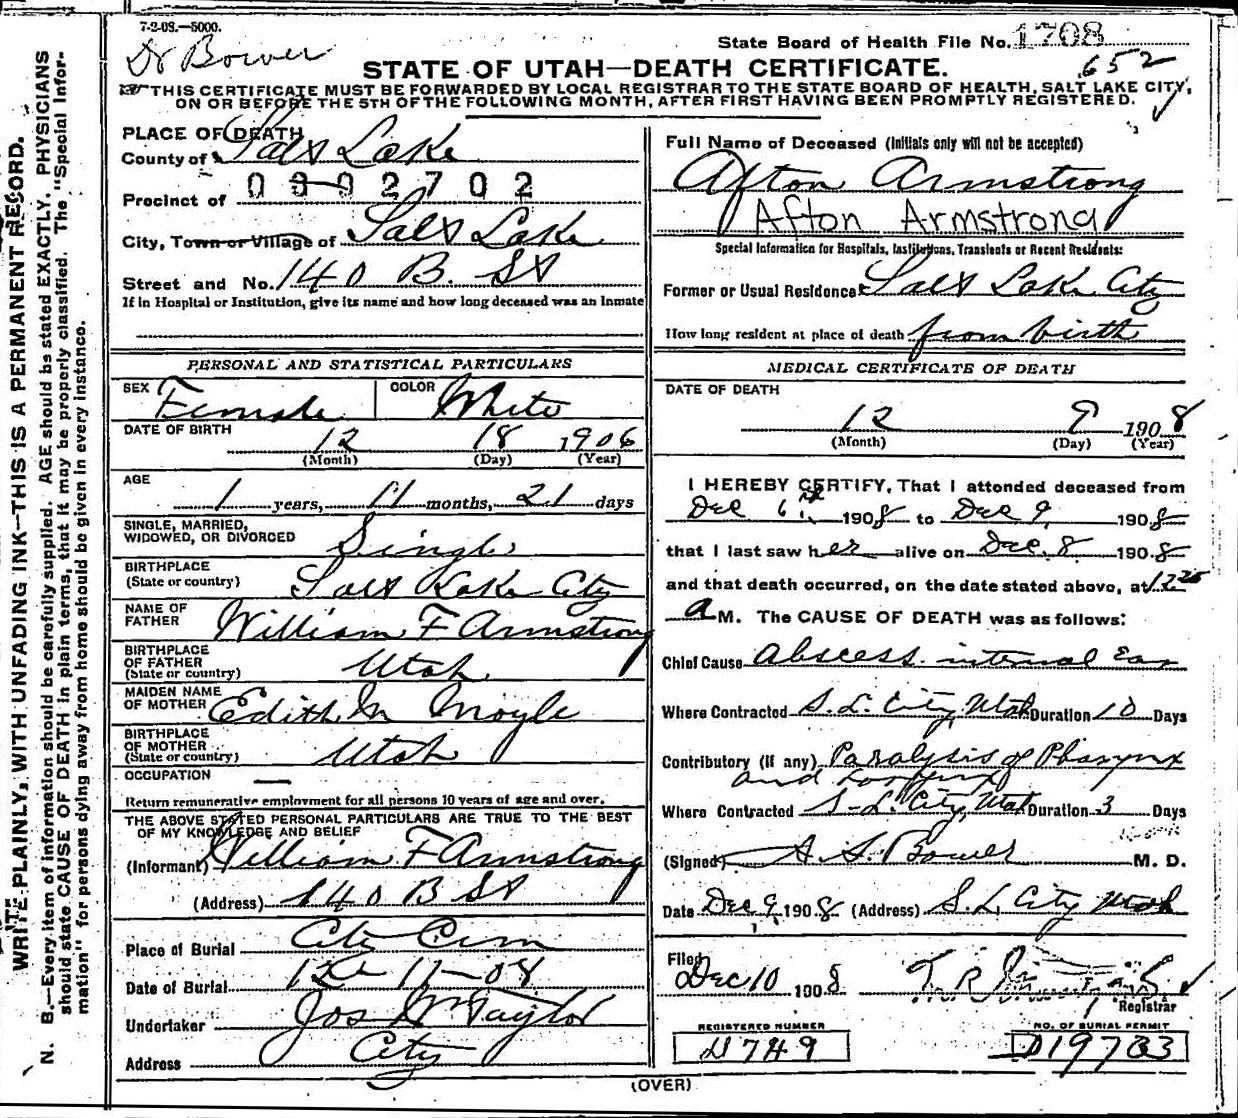 7-2-08.—5000.
Dr Bower
State Board of Health File No. 1708
652
STATE OF UTAH—DEATH CERTIFICATE.
THIS CERTIFICATE MUST BE FORWARDED BY LOCAL REGISTRAR TO THE STATE BOARD OF HEALTH, SALT LAKE CITY,
ON OR BEFORE THE 5TH OF THE FOLLOWING MONTH, AFTER FIRST HAVING BEEN PROMPTLY REGISTERED.
WRITE PLAINLY, WITH UNFADING INK—THIS IS A PERMANENT RECORD.
N. B.—Every item of information should be carefully supplied. AGE should be stated EXACTLY. PHYSICIANS
should state CAUSE OF DEATH in plain terms, that it may be properly classified. The "Special Infor-
mation" for persons dying away from home should be given in every instance.
PLACE OF DEATH
County of Salt Lake
0302702
Precinct of
City, Town or Village of Salt Lake
Street and No. 140 B. St
If in Hospital or Institution, give its name and how long deceased was an Inmate
PERSONAL AND STATISTICAL PARTICULARS
SEX Female COLOR White
DATE OF BIRTH
12 18 1906
(Month) (Day) (Year)
AGE
1 years, 11 months, 21 days
SINGLE, MARRIED,
WIDOWED, OR DIVORCED Single
BIRTHPLACE
(State or country) Salt Lake City
NAME OF
FATHER William F Armstrong
BIRTHPLACE
OF FATHER
(State or country) Utah
MAIDEN NAME
OF MOTHER Edith M Moyle
BIRTHPLACE
OF MOTHER
(State or country) Utah
OCCUPATION —
Return remunerative employment for all persons 10 years of age and over.
THE ABOVE STATED PERSONAL PARTICULARS ARE TRUE TO THE BEST
OF MY KNOWLEDGE AND BELIEF
(Informant) William F Armstrong
(Address) 140 B St
Place of Burial City Cem
Date of Burial 12 11-08
Undertaker Jos W Taylor
Address City
Full Name of Deceased (Initials only will not be accepted)
Afton Armstrong
Afton Armstrong
Special Information for Hospitals, Institutions, Transients or Recent Residents:
Former or Usual Residence Salt Lake City
How long resident at place of death from birth
MEDICAL CERTIFICATE OF DEATH
DATE OF DEATH
12 9 1908
(Month) (Day) (Year)
I HEREBY CERTIFY, That I attended deceased from
Dec 6th 1908 to Dec 9, 1908
that I last saw her alive on Dec. 8 1908
and that death occurred, on the date stated above, at 12 25
a M. The CAUSE OF DEATH was as follows:
Chief Cause Abscess internal Ear
Where Contracted S. L. City, Utah Duration 10 Days
Contributory (if any) Paralysis of Pharynx
and Larynx
Where Contracted S-L. City, Utah Duration 3 Days
(Signed) A. S. Bower M. D.
Date Dec 9, 1908 (Address) S. L. City Utah
Filed
Dec 10 1908
Registrar
REGISTERED NUMBER
D749
NO. OF BURIAL PERMIT
D19733
(OVER)